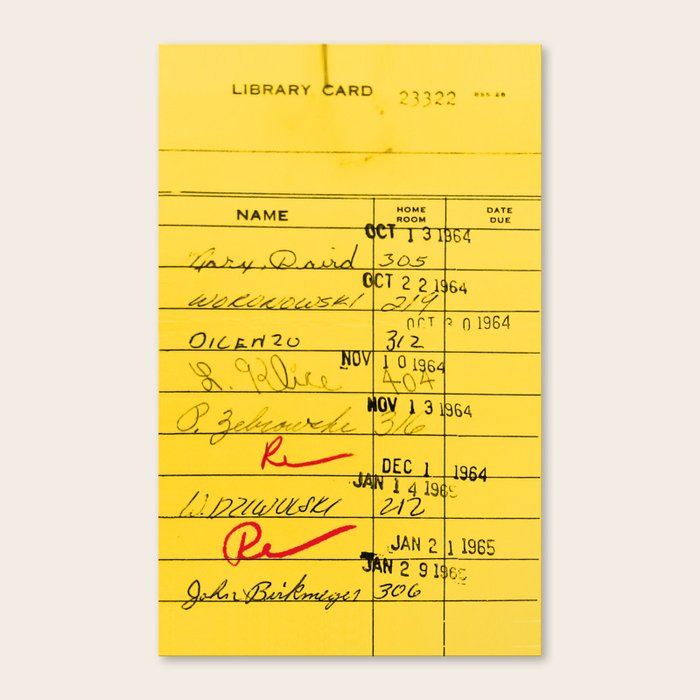 LIBRARY CARD 23322
NAME HOME ROOM DATE DUE
OCT 13 1964
Gary, David 305
OCT 22 1964
WORONOWSKI 219
OCT 30 1964
DILENZO 312
NOV 10 1964
L. Klice 404
NOV 13 1964
P. Zebrowski 316
Re
DEC 1 1964
JAN 14 1965
W. DZIWULSKI 212
Re
JAN 21 1965
JAN 29 1965
John Birkmeyer 306